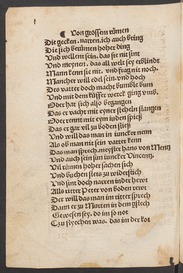 Von grossem rümen
Die gecken, narren, ich auch bring
Die sich berümen hoher ding
Und wellent sein, das sie nit sint
Und meynen, das all welt sey erblindt
Mann kenn sie nit, und frag nit noch
Mancher will edel sein, und hoch
Des vatter doch macht bumble bum
Und mit dem küffer werck ging umb,
Oder hat sich also begangen
Das er vacht mit eyner stehelin stangen
Oder rennt mit eym juden spiess
Das er gar vil zu boden stiess
Und will das man im juncker nenn
Als ob man nit sein vatter kenn
Das man sprech, meyster hans von Mentz
Und auch sein sun juncker Vincentz,
Vil rümen hoher sachen sich
Und bochen stets zu widerstich
Und sint doch narren inn der hut
Als ritter Peter von boden
Der will das man im ritter sprech
Dann er zu Murten in dem stech
Gewesen sey, do im so not
Zu fyechen was, das im der kot